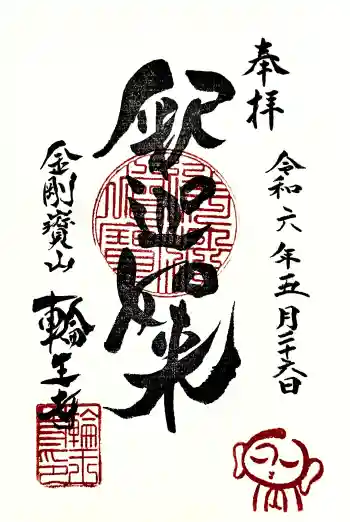 奉拝
令和六年五月二十六日
釈迦如来
金剛寳山
輪王寺